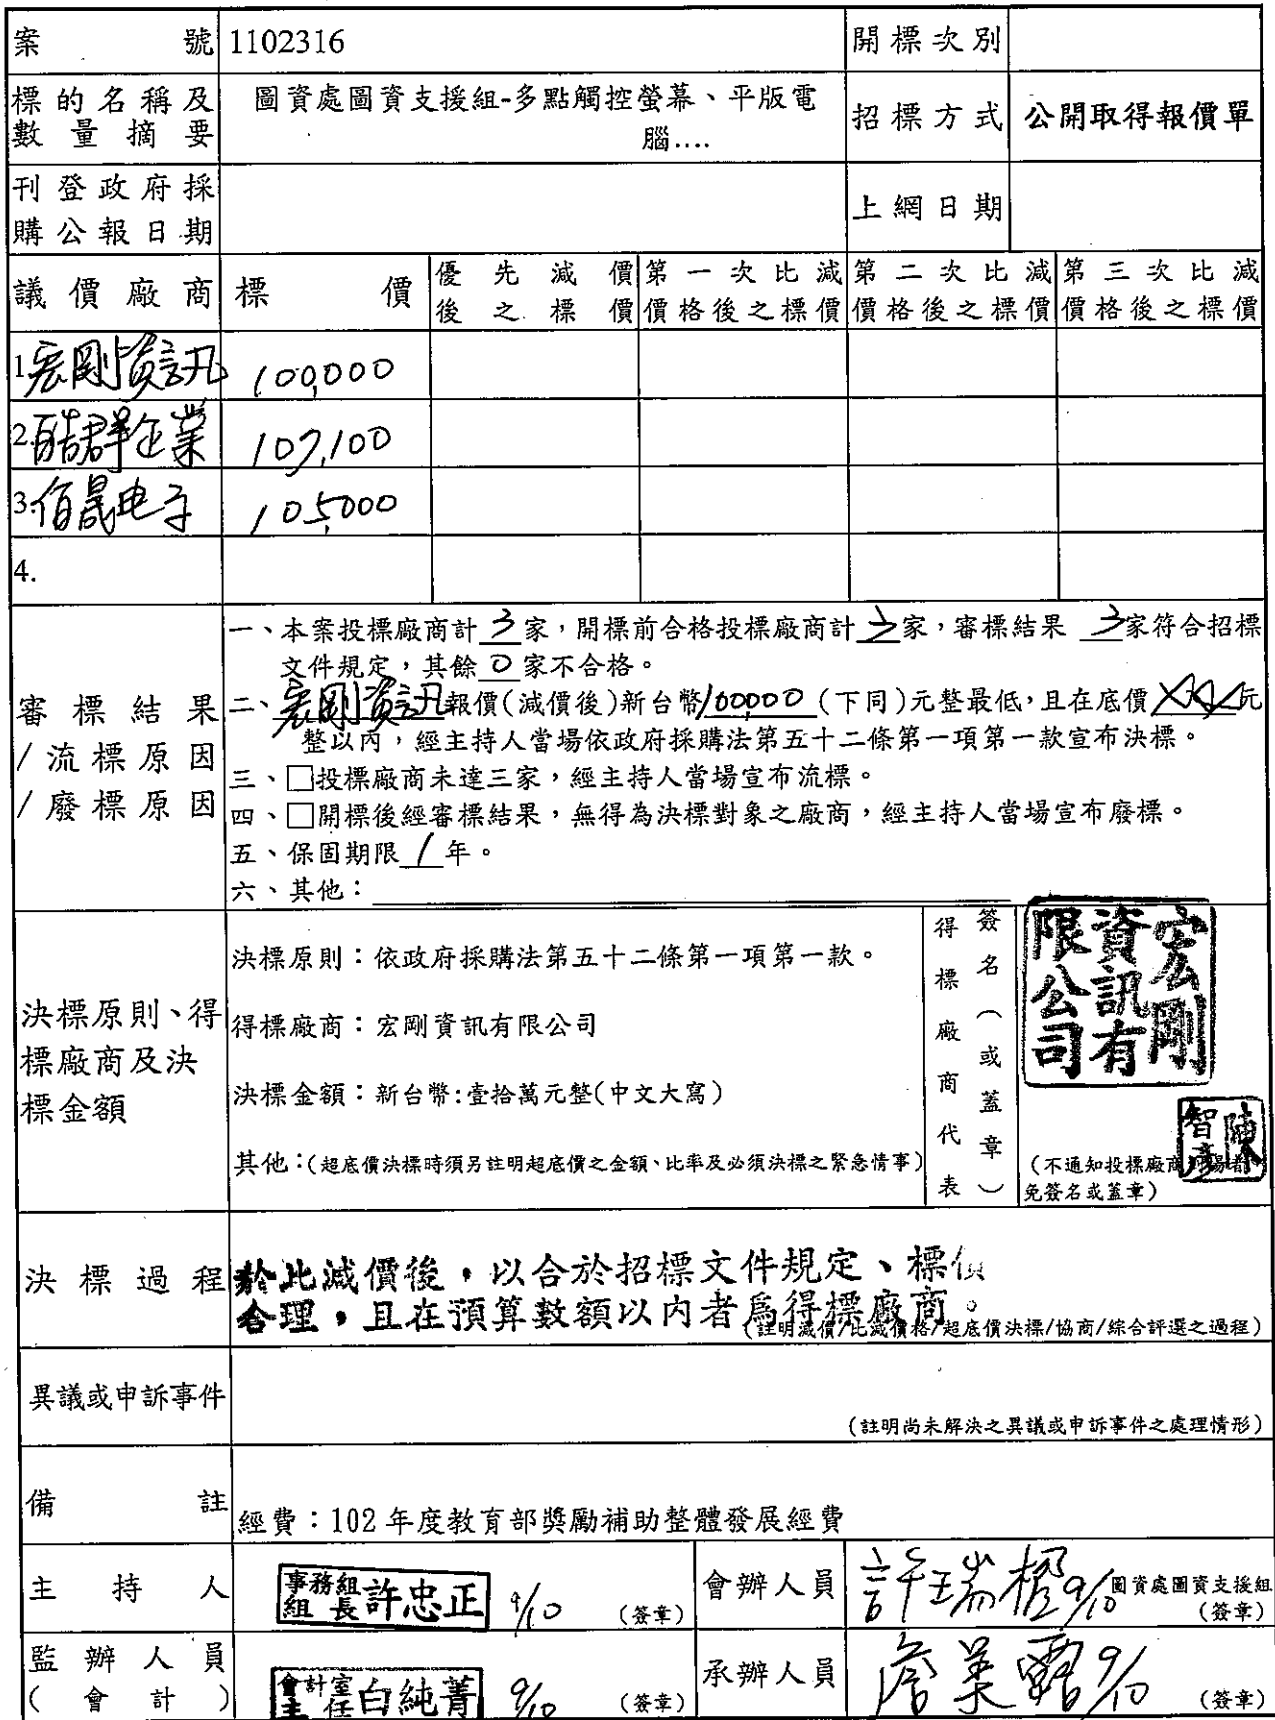 案號 1102316 開標次別
標的名稱及數量摘要 圖資處圖資支援組-多點觸控螢幕、平版電腦.... 招標方式 公開取得報價單
刊登政府採購公報日期 上網日期
議價廠商 標價 優先減價後之標價 第一次比減價格後之標價 第二次比減價格後之標價 第三次比減價格後之標價
1.宏剛資訊 100,000
2.酷群企業 107,100
3.佰晟电子 105,000
4.
審標結果/流標原因/廢標原因
一、本案投標廠商計 3 家，開標前合格投標廠商計 3 家，審標結果 3 家符合招標
文件規定，其餘 0 家不合格。
二、宏剛資訊報價(減價後)新台幣100,000(下同)元整最低，且在底價 元
整以內，經主持人當場依政府採購法第五十二條第一項第一款宣布決標。
三、□投標廠商未達三家，經主持人當場宣布流標。
四、□開標後經審標結果，無得為決標對象之廠商，經主持人當場宣布廢標。
五、保固期限 1 年。
六、其他：
決標原則、得標廠商及決標金額
決標原則：依政府採購法第五十二條第一項第一款。
得標廠商：宏剛資訊有限公司
決標金額：新台幣:壹拾萬元整(中文大寫)
其他：(超底價決標時須另註明超底價之金額、比率及必須決標之緊急情事)
得標廠商代表
簽名(或蓋章)
宏剛資訊有限公司
陳智彥
(不通知投標廠商到場者
免簽名或蓋章)
決標過程
於比減價後，以合於招標文件規定、標價
合理，且在預算數額以內者為得標廠商。
(註明減價/比減價格/超底價決標/協商/綜合評選之過程)
異議或申訴事件
(註明尚未解決之異議或申訴事件之處理情形)
備註 經費：102 年度教育部獎勵補助整體發展經費
主持人 事務組組長 許忠正 9/10 (簽章) 會辦人員 許瑞 9/10 圖資處圖資支援組 (簽章)
監辦人員(會計) 會計室主任 白純菁 9/10 (簽章) 承辦人員 詹美 9/10 (簽章)